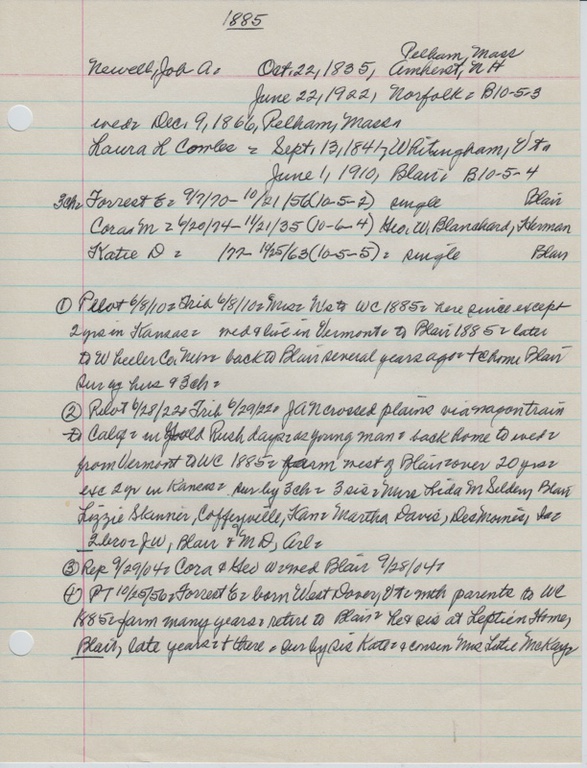 1885
Pelham, Mass
Newell, Job A = Oct. 22, 1835, Amherst, N H
June 22, 1922, Norfolk = B10-5-3
wed = Dec. 9, 1866, Pelham, Mass =
Laura L Cowles = Sept. 13, 1841, Whitingham, Vt =
June 1, 1910, Blair = B10-5-4
3ch = Forrest E = 9/7/70 - 10/21/56 (10-5-2) single Blair
Cora M = 6/20/74 - 11/21/35 (10-6-4) Geo. W. Blanchard, Herman
Katie D = /77 - 1/25/63 (10-5-5) = single Blair
① Pilot 6/8/10 = Trib 6/8/10 = Mrs = to WC 1885 = here since except
2 yrs in Kansas = wed & live in Vermont = to Blair 1885 = later
to Wheeler Co. = back to Blair several years ago = + @ home Blair
sur by hus & 3ch =
② Pilot 6/28/22 = Trib 6/29/22 = JAN crossed plains via wagon train
to Calif = in Gold Rush days = as young man = back home to wed =
from Vermont to WC 1885 = farm west of Blair = over 20 yrs =
exc 2 yr in Kansas = sur by 3ch = 3 sis = Mrs Lida M Selden, Blair
Lizzie Skinner, Coffeyville, Kan = Martha Davis, Des Moines, Ia =
2 bro = J W, Blair & M D, Arl =
③ Rep 9/29/04 = Cora & Geo W wed Blair 9/28/04 =
④ PT 10/25/56 = Forrest E = born West Dover, Vt = with parents to WC
1885 = farm many years = retire to Blair = he & sis at Leptien Home,
Blair, late years = + there = sur by sis Kate = & cousin Mrs McKay =